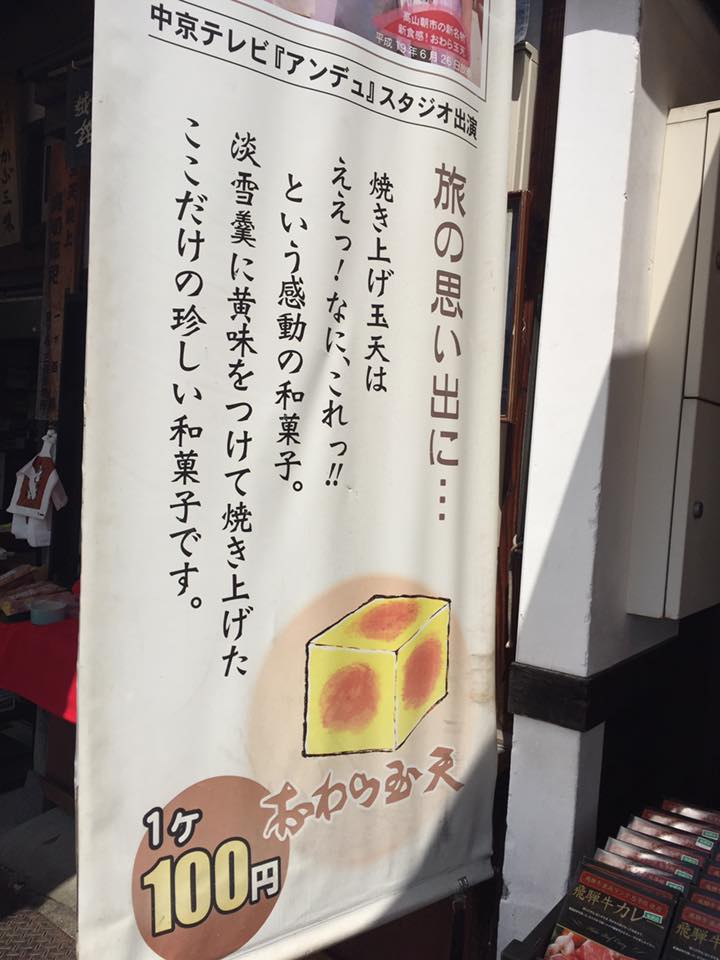 高山朝市の新名物
新食感!おわら玉天
平成19年6月26日
中京テレビ『アンデュ』スタジオ出演
旅の思い出に…
焼き上げ玉天は
ええっ!なに、これっ!!
という感動の和菓子。
淡雪羹に黄味をつけて焼き上げた
ここだけの珍しい和菓子です。
おわら玉天
1ヶ
100円
飛騨牛カレー